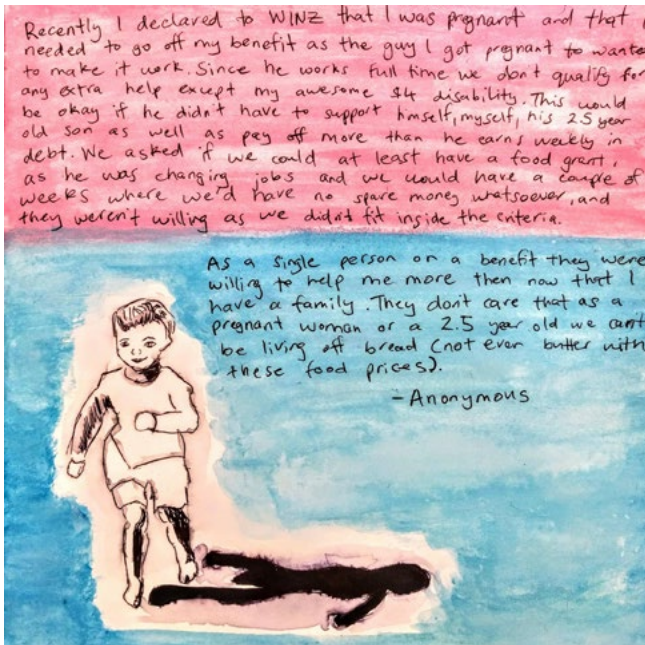 Recently I declared to WINZ that I was pregnant and that I
needed to go off my benefit as the guy I got pregnant to wanted
to make it work. Since he works full time we don't qualify for
any extra help except my awesome $4 disability. This would
be okay if he didn't have to support himself, myself, his 2.5 year
old son as well as pay off more than he earns weekly in
debt. We asked if we could at least have a food grant,
as he was changing jobs and we would have a couple of
weeks where we'd have no spare money whatsoever, and
they weren't willing as we didn't fit inside the criteria.
As a single person on a benefit they were
willing to help me more then now that I
have a family. They don't care that as a
pregnant woman or a 2.5 year old we can't
be living off bread (not even butter with
these food prices).
- Anonymous